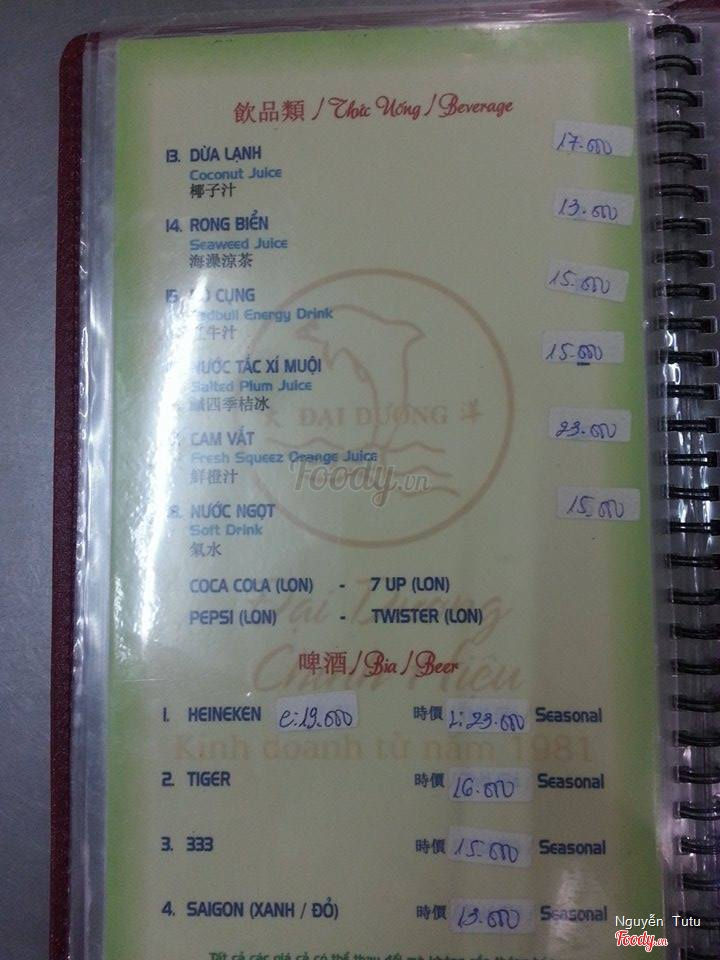 飲品類 / Thức Uống / Beverage
13. DỪA LẠNH 17.000
Coconut Juice
椰子汁
14. RONG BIỂN 13.000
Seaweed Juice
海澡涼茶
15. BÒ CỤNG 15.000
Redbull Energy Drink
牛汁
NƯỚC TẮC XÍ MUỘI 15.000
Salted Plum Juice
鹹四季桔冰
ĐẠI DƯƠNG 洋
CAM VẮT 23.000
Fresh Squeez Orange Juice
鮮橙汁
Foody.vn
NƯỚC NGỌT 15.000
Soft Drink
氣水
COCA COLA (LON) - 7 UP (LON)
PEPSI (LON) - TWISTER (LON)
Đại Dương
啤酒 / Bia / Beer
Chính Hiệu
1. HEINEKEN e:19.000 時價 L:23.000 Seasonal
Kinh doanh từ năm 1981
2. TIGER 時價 16.000 Seasonal
3. 333 時價 15.000 Seasonal
4. SAIGON (XANH / ĐỎ) 時價 13.000 Seasonal
Nguyễn Tutu
Foody.vn
Tất cả các giá cả có thể thay đổi mà không